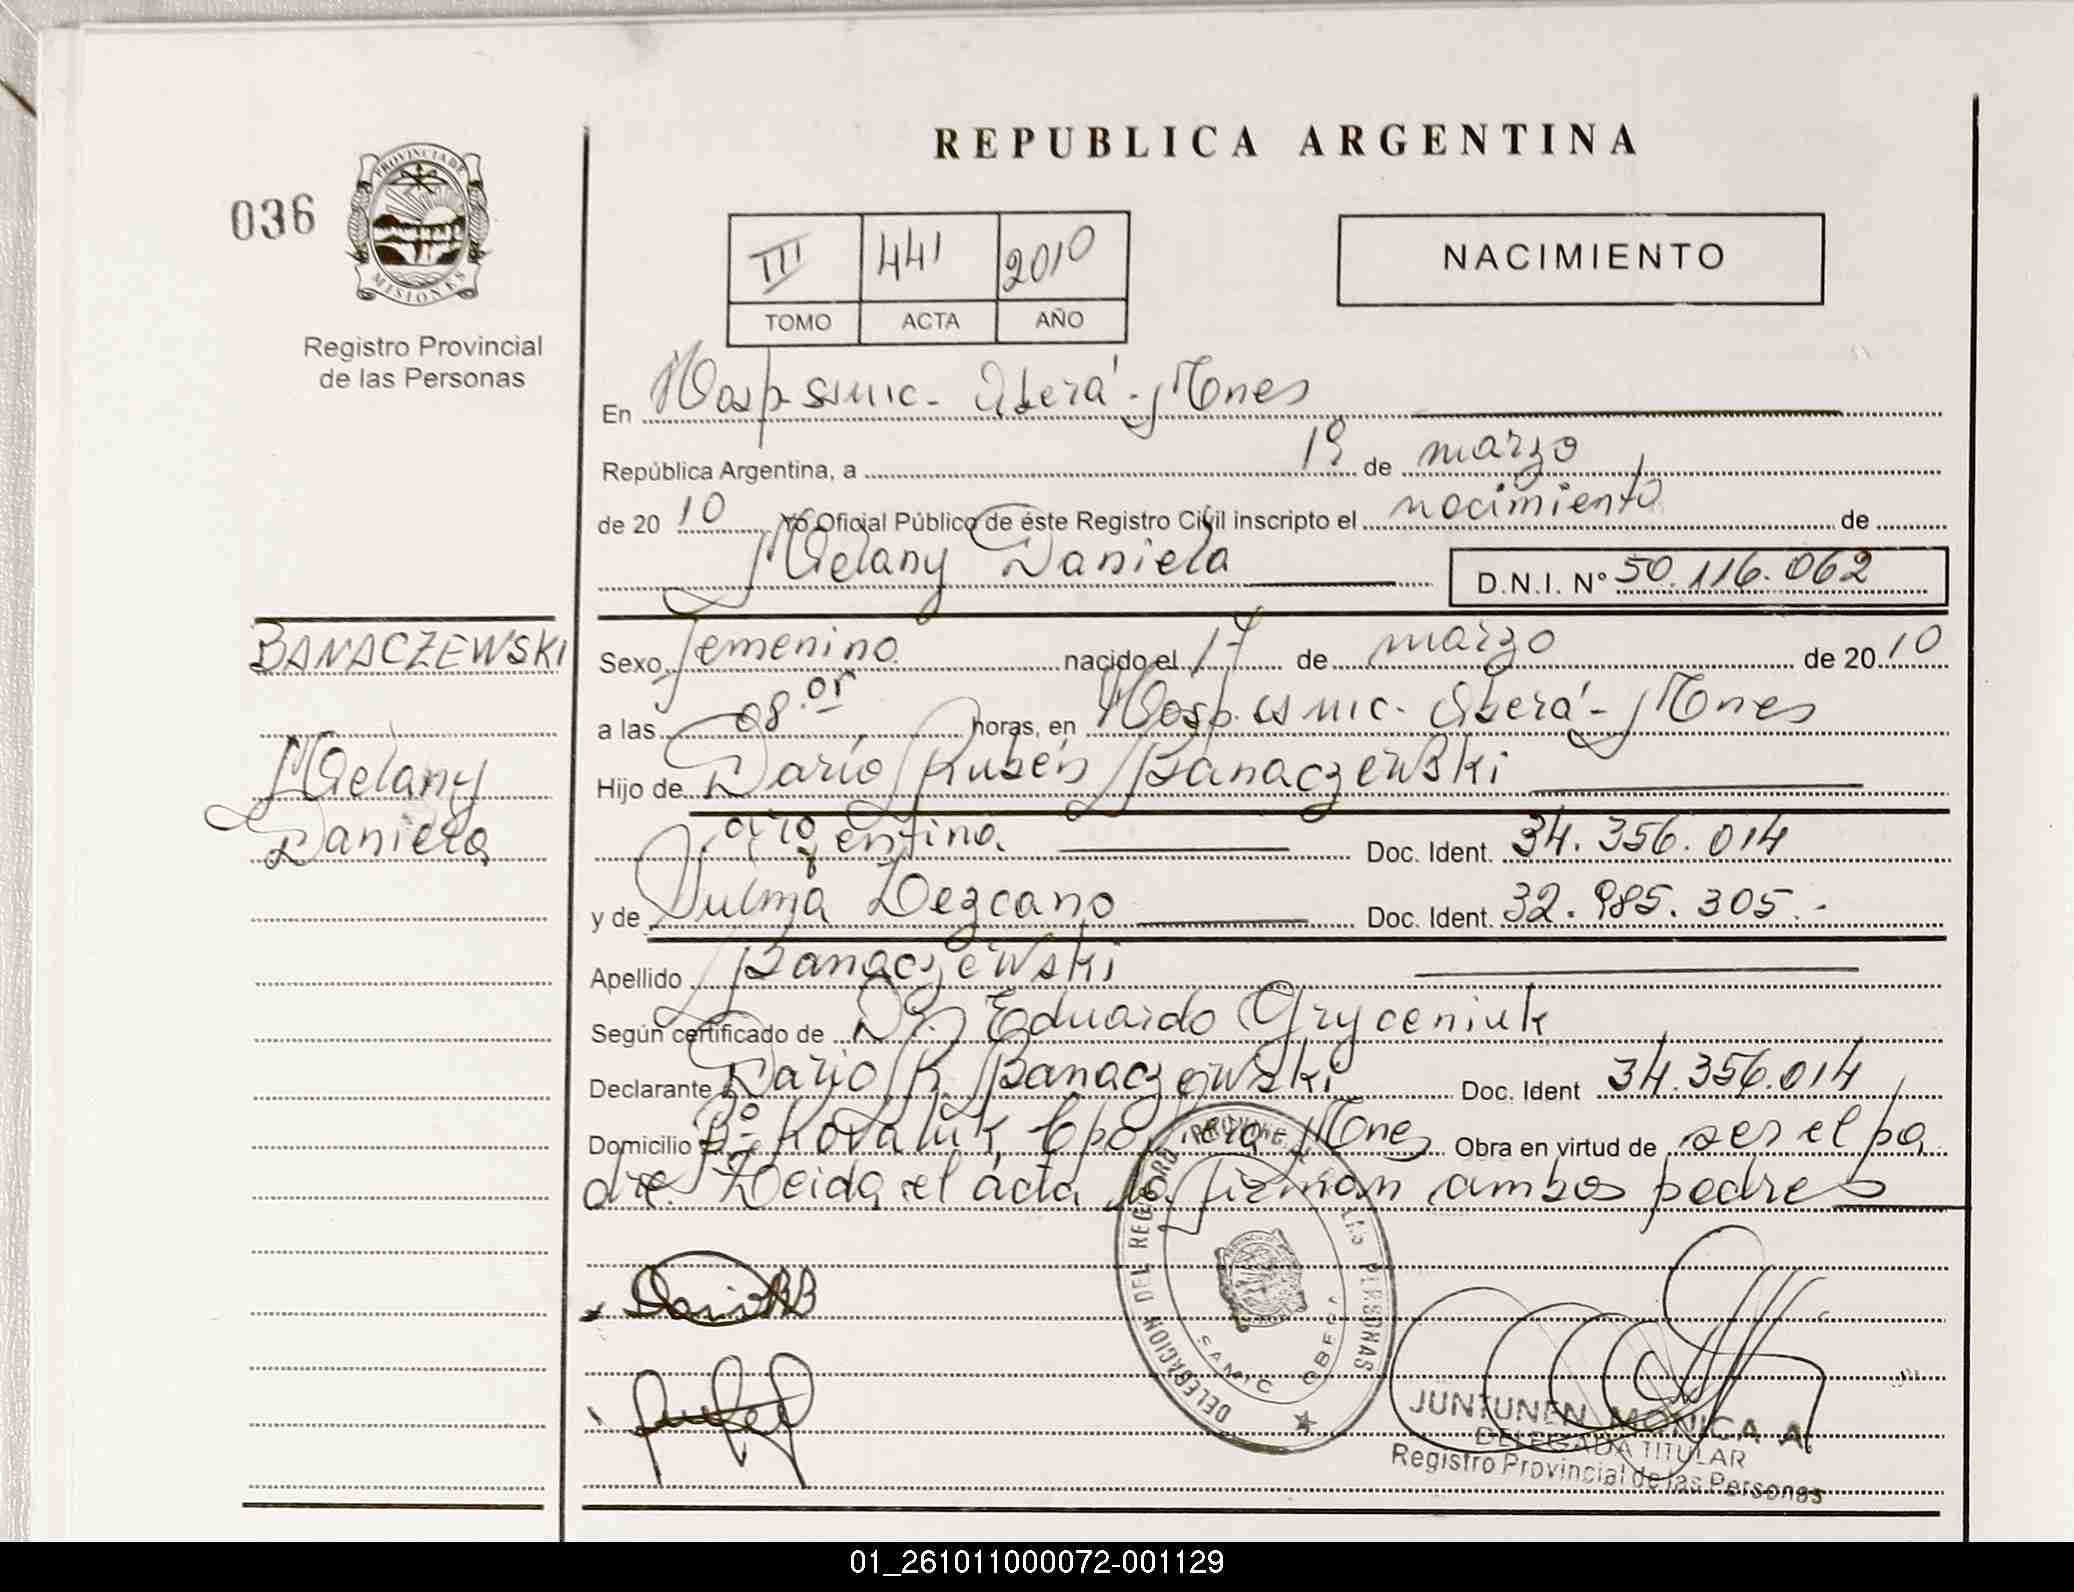 REPUBLICA ARGENTINA
036
PROVINCIA DE
MISIONES
Registro Provincial
de las Personas
III 441 2010
TOMO ACTA AÑO
NACIMIENTO
En Hosp. SAMIC - Oberá - Mnes
República Argentina, a 19 de marzo
de 2010 Yo Oficial Público de éste Registro Civil inscripto el nacimiento de
Melany Daniela D.N.I. Nº 50.116.062
BANACZEWSKI
Melany
Daniela
Sexo femenino nacido el 17 de marzo de 2010
a las 08. horas, en Hosp. SAMIC - Oberá - Mnes
Hijo de Darío Rubén Banaczewski
argentina Doc. Ident. 34.356.014
y de Lezcano Doc. Ident. 32.985.305.-
Apellido Banaczewski
Según certificado de Dr. Eduardo Gryceniuk
Declarante Darío R. Banaczewski Doc. Ident 34.356.014
Domicilio Bº Kovaluk, Cpo. Viera Mnes Obra en virtud de ser el pa
dre. Leida el acta la firman ambos padres
DELEGACION DEL REGISTRO PROVINCIAL DE LAS PERSONAS
SAMIC OBERA
JUNTUNEN MONICA A.
DELEGADA TITULAR
Registro Provincial de las Personas
01_261011000072-001129